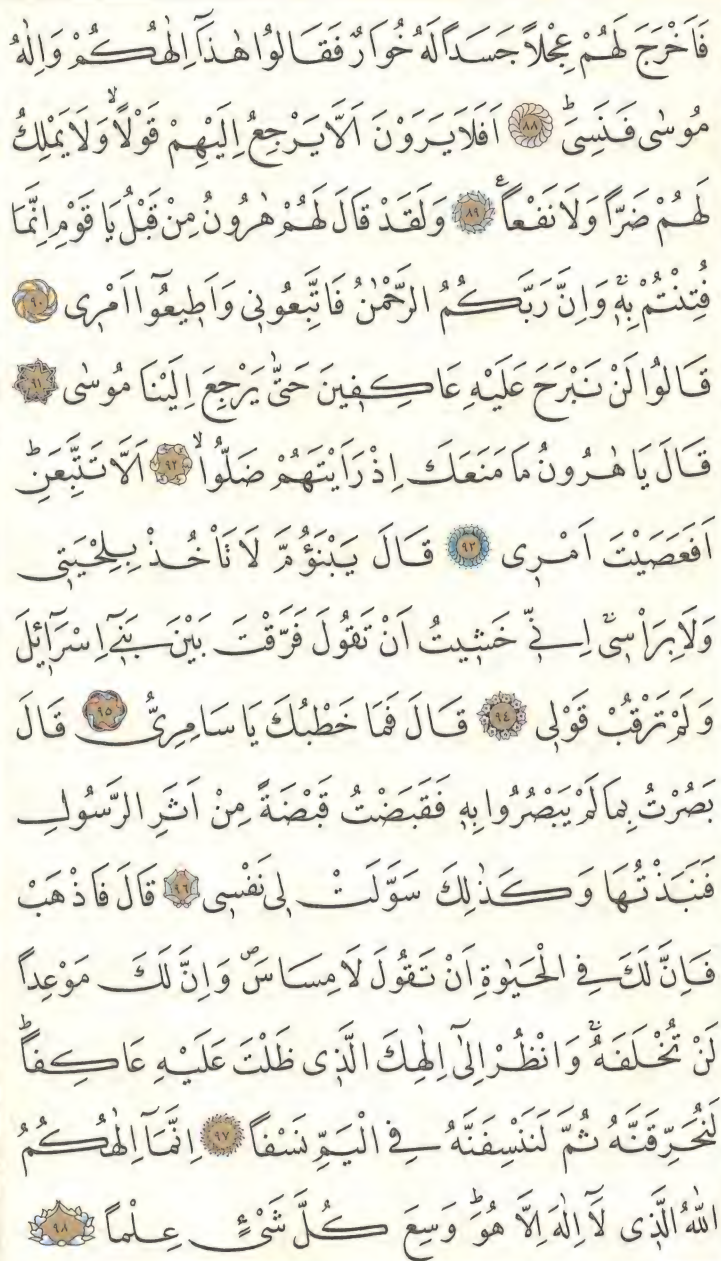 فَاَخْرَجَ لَهُمْ عِجْلاً جَسَداً لَهُ خُوَارٌ فَقَالُوا هٰذَٓا اِلٰهُكُمْ وَاِلٰهُ
مُوسٰى فَنَسِىَۜ ﴿٨٨﴾ اَفَلَا يَرَوْنَ اَلَّا يَرْجِعُ اِلَيْهِمْ قَوْلاًۙ وَلَا يَمْلِكُ
لَهُمْ ضَراًّ وَلَا نَفْعاًۚ ﴿٨٩﴾ وَلَقَدْ قَالَ لَهُمْ هٰرُونُ مِنْ قَبْلُ يَا قَوْمِ اِنَّمَا
فُتِنْتُمْ بِهٖۚ وَاِنَّ رَبَّكُمُ الرَّحْمٰنُ فَاتَّبِعُونٖى وَاَطٖيعُٓوا اَمْرٖى ﴿٩٠﴾
قَالُوا لَنْ نَبْرَحَ عَلَيْهِ عَاكِفٖينَ حَتّٰى يَرْجِعَ اِلَيْنَا مُوسٰى ﴿٩١﴾
قَالَ يَا هٰرُونُ مَا مَنَعَكَ اِذْ رَاَيْتَهُمْ ضَلُّواۙ ﴿٩٢﴾ اَلَّا تَتَّبِعَنِۜ
اَفَعَصَيْتَ اَمْرٖى ﴿٩٣﴾ قَالَ يَبْنَؤُمَّ لَا تَأْخُذْ بِلِحْيَتٖى
وَلَا بِرَأْسٖىۚ اِنّٖى خَشٖيتُ اَنْ تَقُولَ فَرَّقْتَ بَيْنَ بَنٖٓى اِسْرَٓائٖلَ
وَلَمْ تَرْقُبْ قَوْلٖى ﴿٩٤﴾ قَالَ فَمَا خَطْبُكَ يَا سَامِرِىُّ ﴿٩٥﴾ قَالَ
بَصُرْتُ بِمَا لَمْ يَبْصُرُوا بِهٖ فَقَبَضْتُ قَبْضَةً مِنْ اَثَرِ الرَّسُولِ
فَنَبَذْتُهَا وَكَذٰلِكَ سَوَّلَتْ لٖى نَفْسٖى ﴿٩٦﴾ قَالَ فَاذْهَبْ
فَاِنَّ لَكَ فِى الْحَيٰوةِ اَنْ تَقُولَ لَا مِسَاسَۖ وَاِنَّ لَكَ مَوْعِداً
لَنْ تُخْلَفَهُۚ وَانْظُرْ اِلٰٓى اِلٰهِكَ الَّذٖى ظَلْتَ عَلَيْهِ عَاكِفاًۜ
لَنُحَرِّقَنَّهُ ثُمَّ لَنَنْسِفَنَّهُ فِى الْيَمِّ نَسْفاً ﴿٩٧﴾ اِنَّمَٓا اِلٰهُكُمُ
اللّٰهُ الَّذٖى لَٓا اِلٰهَ اِلَّا هُوَۜ وَسِعَ كُلَّ شَىْءٍ عِلْماً ﴿٩٨﴾